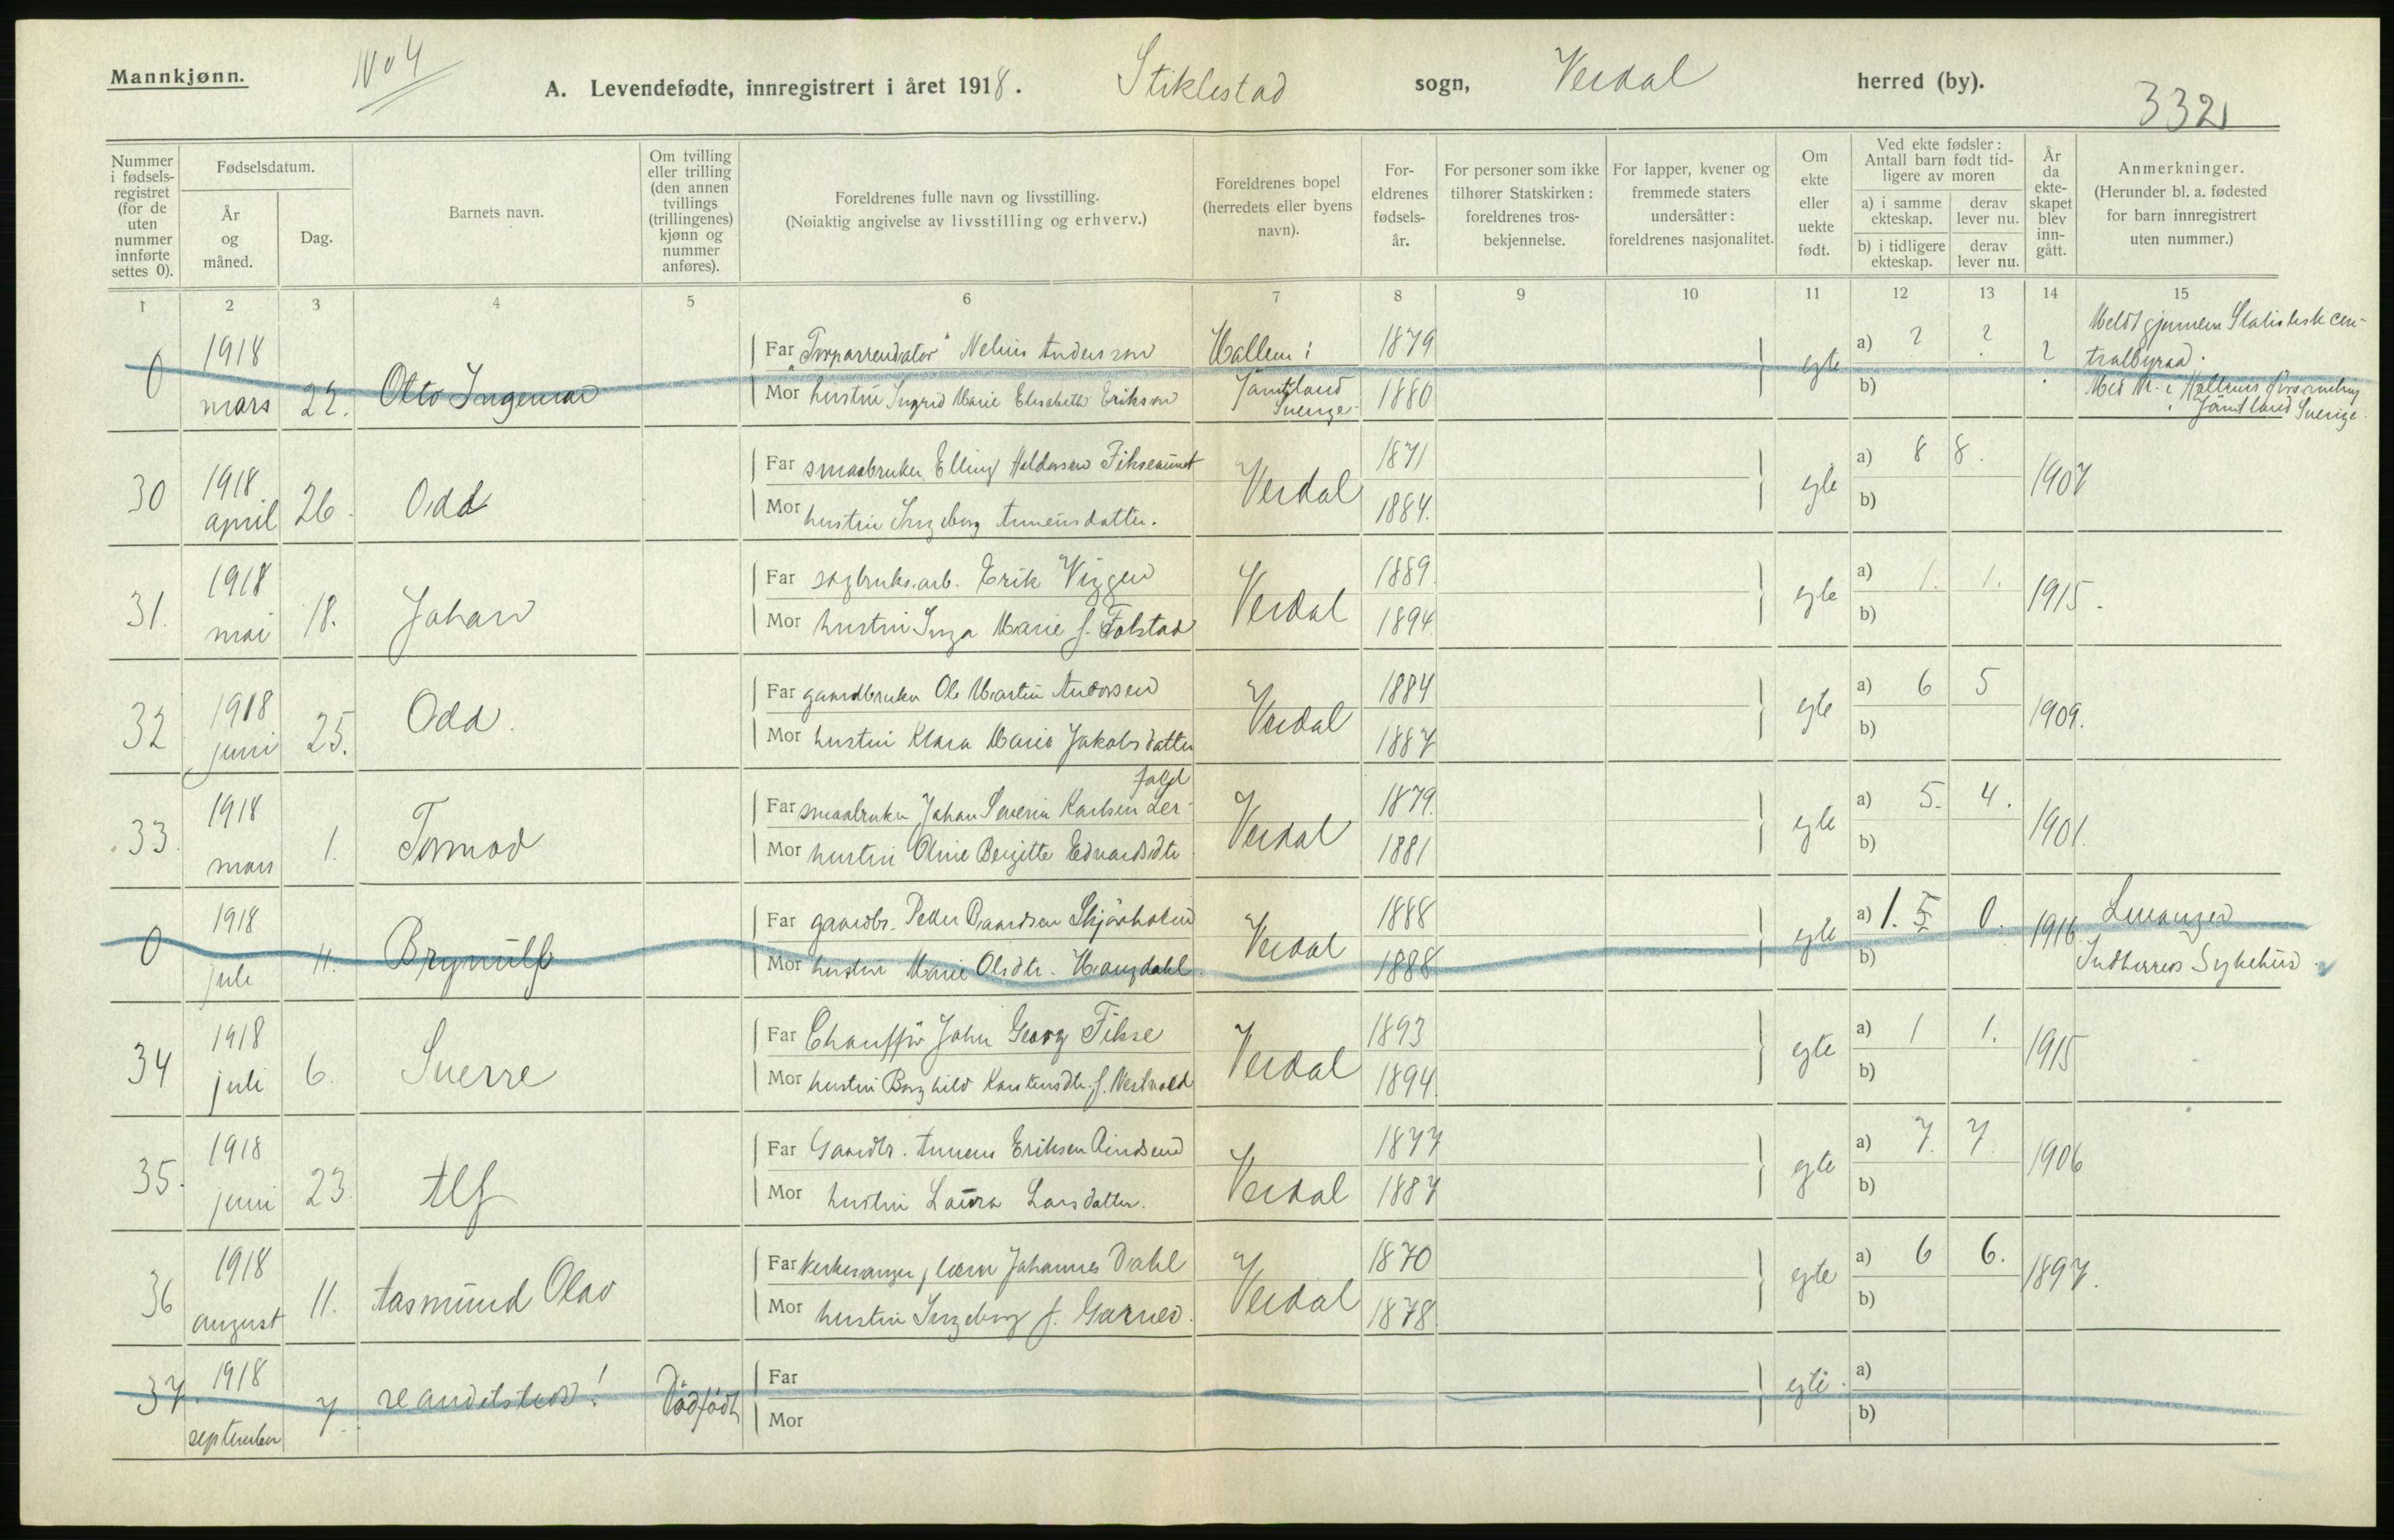 Mannkjønn.
No 4
A. Levendefødte, innregistrert i året 1918. Stiklestad sogn, Verdal herred (by).
332
Nummer i fødsels-registret (for de uten nummer innførte settes 0).
Fødselsdatum.
År og måned.
Dag.
Barnets navn.
Om tvilling eller trilling (den annen tvillings (trillingenes) kjønn og nummer anføres).
Foreldrenes fulle navn og livsstilling.
(Nøiaktig angivelse av livsstilling og erhverv.)
Foreldrenes bopel (herredets eller byens navn).
For-eldrenes fødsels-år.
For personer som ikke tilhører Statskirken: foreldrenes tros-bekjennelse.
For lapper, kvener og fremmede staters undersåtter: foreldrenes nasjonalitet.
Om ekte eller uekte født.
Ved ekte fødsler: Antall barn født tid-ligere av moren
a) i samme ekteskap.
derav lever nu.
b) i tidligere ekteskap.
derav lever nu.
År da ekte-skapet blev inn-gått.
Anmerkninger.
(Herunder bl. a. fødested for barn innregistrert uten nummer.)
1 2 3 4 5 6 7 8 9 10 11 12 13 14 15
0 1918 mars 22. Otto Ingemar
Far "Torparrendator" Nelius Anderson
Mor hustru Ingrid Marie Elisabeth Erikson
Hallem i Jämtland Sverige
1879
1880
egte a) ? ? ?
b)
Meldt gjennem Statistisk Cen-
tralbyraa.
Jämtland Sverige.
30 1918 april 26. Odd
Far smaabruker Elling Haldorsen
Mor hustru Ingeborg
Verdal
1871
1884.
egte a) 8 8. 1907
b)
31. 1918 mai 18. Johan
Far sagbruks.arb. Erik Viggen
Mor hustru Inga Marie f. Tolstad
Verdal
1889.
1894.
egte a) 1. 1. 1915.
b)
32 1918 juni 25. Odd.
Far gaardbruker Ole Martin Andersen
Mor hustru Klara Marie Jakobsdatter
Verdal
1884
1887
egte a) 6 5 1909.
b)
33. 1918 mars 1. Tormod
Far smaabruker Johan Severin Karlsen Ler-
fald
Mor hustru Oline Bergitte Edvardsdtr
Verdal
1879.
1881
egte a) 5. 4. 1901.
b)
0 1918 juli 11. Brynulf
Far gaardbr. Peder Baardsen Skjørholm
Mor hustru Marie Olsdtr. Haugdahl.
Verdal
1888
1888
egte a) 1. 0. 1916
b)
Levanger
Indherreds Sykehus.
34 1918 juli 6. Sverre
Far Chauffør John Georg Fikse
Mor hustru Borghild Karstensdtr. f. Vestvold
Verdal
1893
1894.
egte a) 1 1. 1915
b)
35. 1918 juni 23. Alf
Far Gaardbr. Eriksen
Mor hustru Laura Larsdatter.
Verdal
1877
1887
egte a) 7. 7. 1906
b)
36 1918 august 11. Aasmund Olav
Far kirkesanger, lærer Johannes Dahl
Mor hustru Ingeborg f. Garnes.
Verdal
1870
1878.
egte a) 6 6. 1897.
b)
37. 1918 september 7. se andetsteds! Dødfødt
Far
Mor
egte. a)
b)